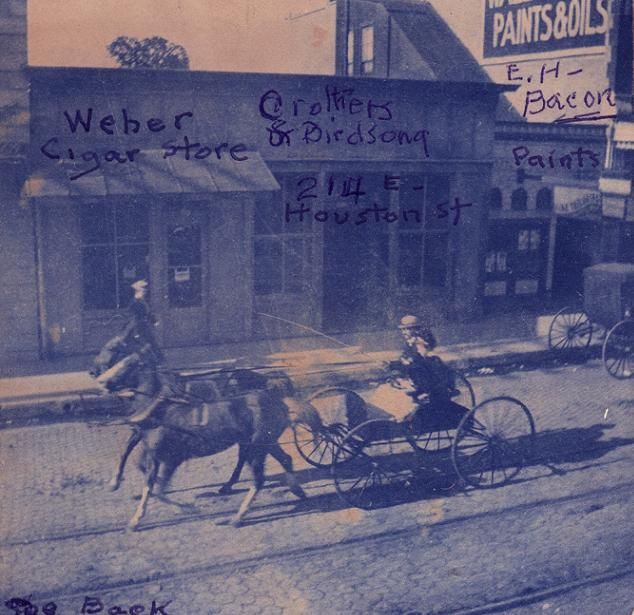 PAINTS & OILS
E. H-
Bacon
Weber
Cigar Store
Crothers
& Birdsong
Paints
214 E-
Houston St
Back